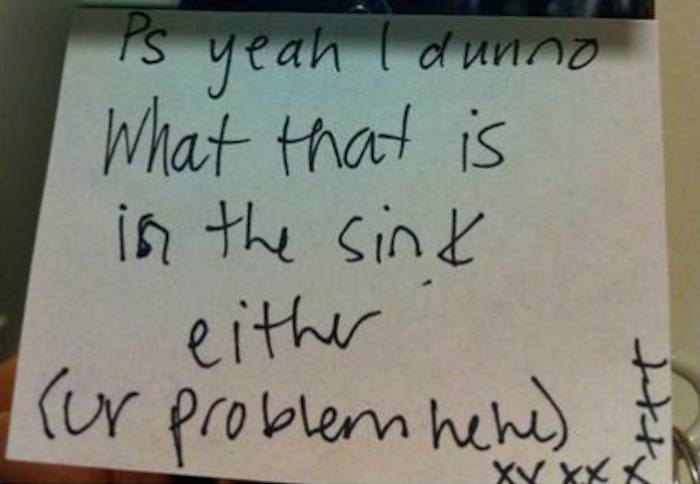 Ps yeah I dunno
What that is
in the sink
either
(ur problem hehe)
xx xx x+++